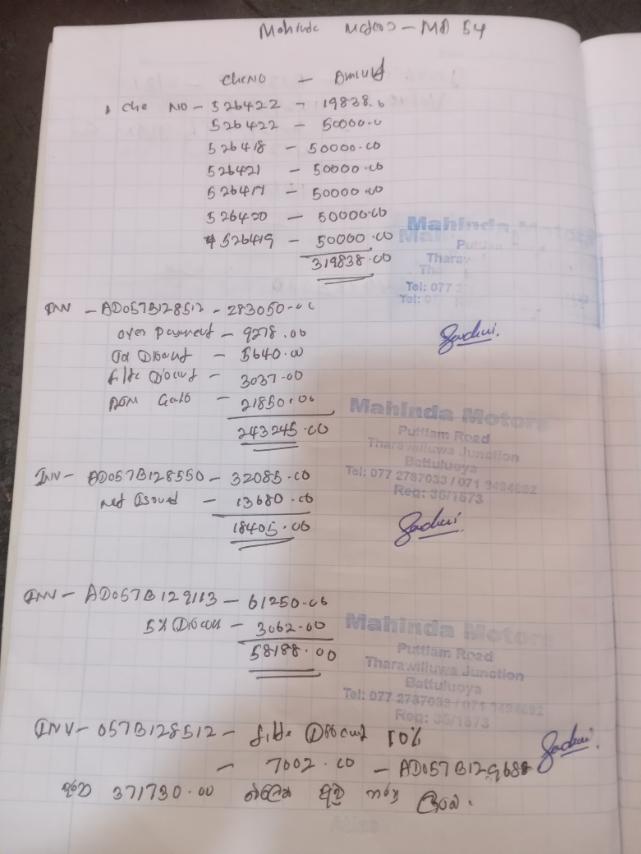 Mahinda Motors - MD 54
Che NO - Amount
Che NO - 526422 - 19838.0
526422 - 50000.00
526418 - 50000.00
526421 - 50000.00
526417 - 50000.00
526420 - 50000.00
526419 - 50000.00
319838.00
Mahinda Motors
Tel: 077 2
INV - AD057B128512 - 283050.00
over payment - 9278.00
Discount - 5640.00
filte Discount - 3037.00
- 21850.00
243245.00
Mahinda Motors
Puttlam Road
Tharawilluwa Junction
Battuluoya
Tel: 077 2787033 / 071 3494692
Reg: 36/1673
INV - AD057B128550 - 32085.00
- 13680.00
18405.00
INV - AD057B129113 - 61250.00
5% Discount - 3062.00
58188.00
Mahinda Motors
Puttlam Road
Tharawilluwa Junction
Battuluoya
Tel: 077 2787033 / 071 3494692
Reg: 36/1673
INV - 057B128512 - filte Discount 10%
- 7002.00 - AD057B129688
371730.00